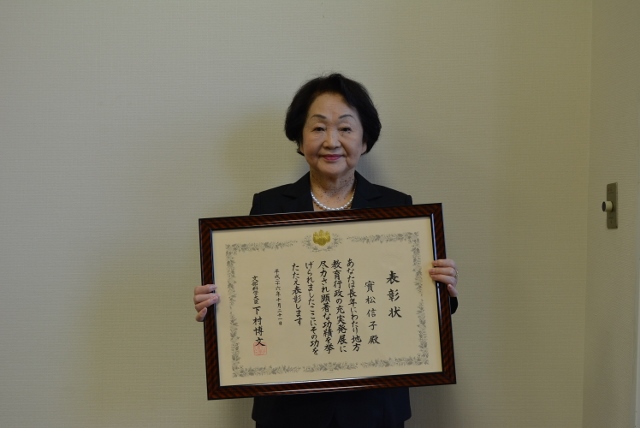 表彰状
實松信子殿
あなたは長年にわたり地方
教育行政の充実発展に
尽力され顕著な功績を挙
げられましたここにその功を
たたえ表彰します
平成二十六年十月二十一日
文部科学大臣 下村博文